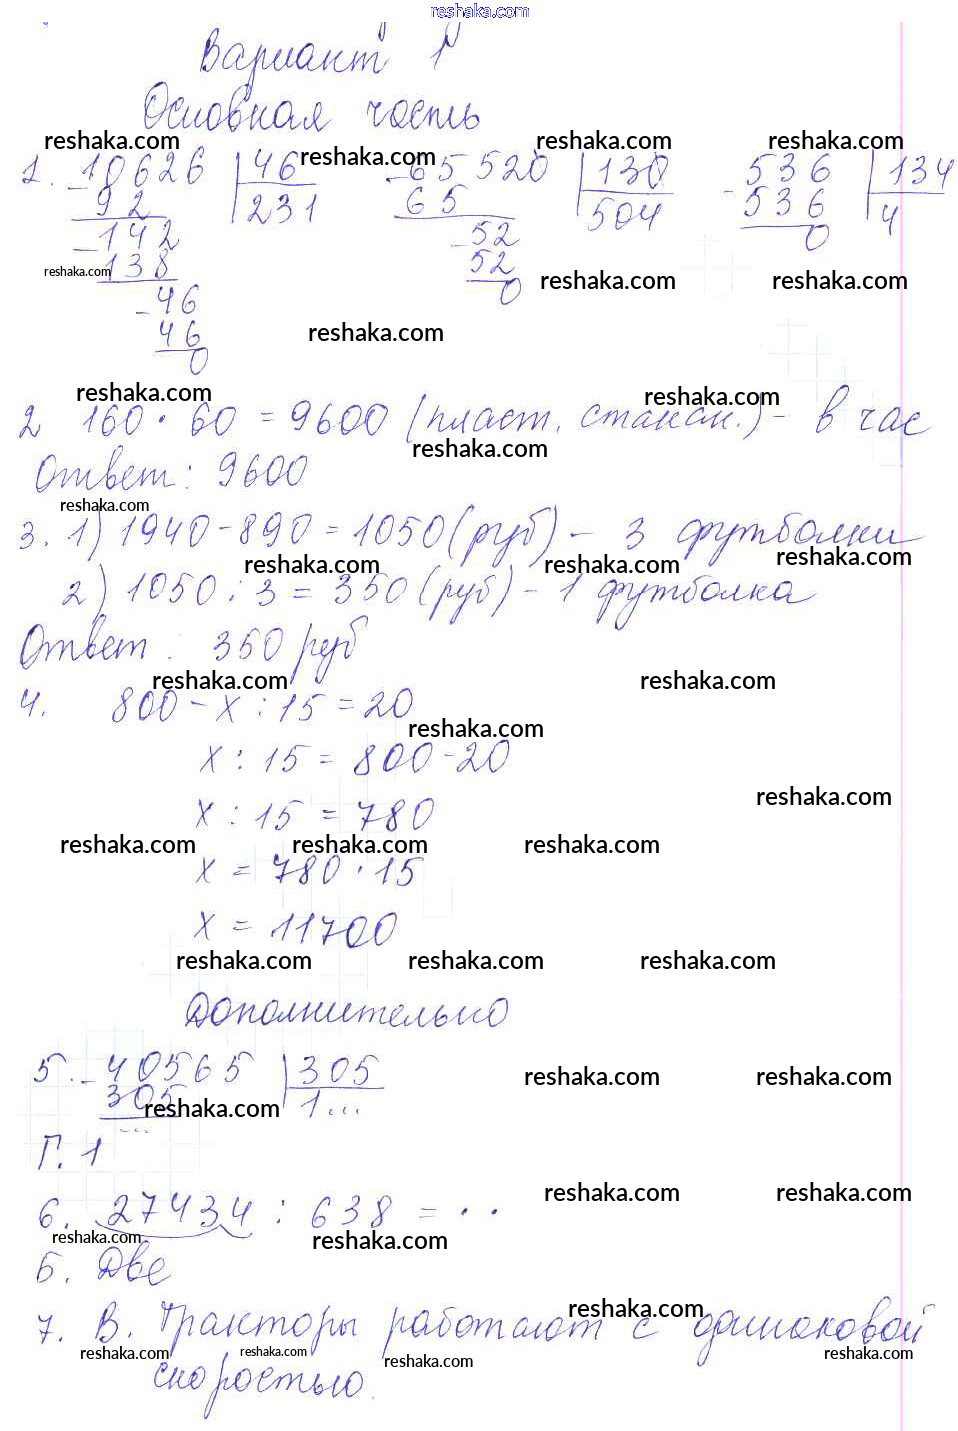 reshaka.com
Вариант 1
Основная часть
reshaka.com reshaka.com reshaka.com reshaka.com
1. -10626 |46 -65520 |130 -536 |134
92 231 65 504 536 4
-142 -52 0
138 52
reshaka.com reshaka.com reshaka.com
-46 0
46
reshaka.com
0
reshaka.com reshaka.com
2 160 · 60 = 9600 (пласт. стакан.) - в час
reshaka.com
Ответ: 9600
reshaka.com
3. 1) 1940 - 890 = 1050 (руб) - 3 футболки
reshaka.com reshaka.com reshaka.com
2) 1050 : 3 = 350 (руб) - 1 футболка
Ответ: 350 руб
reshaka.com reshaka.com
4. 800 - х : 15 = 20
reshaka.com
х : 15 = 800 - 20
reshaka.com
х : 15 = 780
reshaka.com reshaka.com reshaka.com
х = 780 · 15
х = 11700
reshaka.com reshaka.com reshaka.com
Дополнительно
5. -40565 |305
reshaka.com reshaka.com
305 1...
reshaka.com
...
Г. 1
reshaka.com reshaka.com
6. 27434 : 638 = · ·
reshaka.com reshaka.com
Б. Две
reshaka.com
7. В. Тракторы работают с одинаковой
reshaka.com reshaka.com reshaka.com reshaka.com
скоростью.